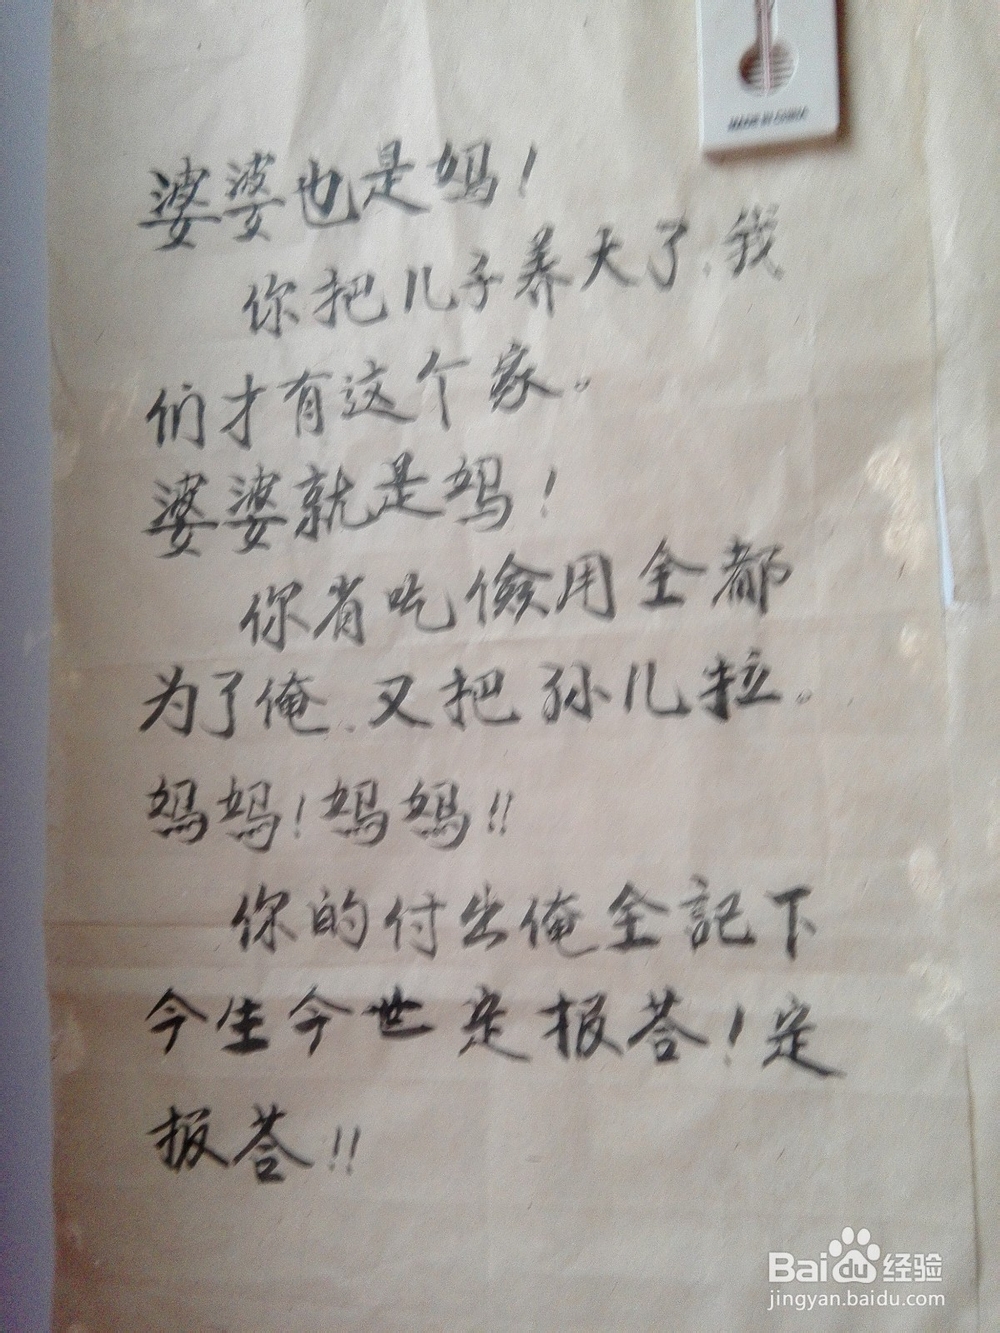 MADE IN CHINA
婆婆也是妈!
你把儿子养大了,我
们才有这个家。
婆婆就是妈!
你省吃儉用全都
为了俺、又把孙儿拉。
妈妈!妈妈!!
你的付出俺全記下
今生今世定报荅!定
报荅!!
Baidu经验
jingyan.baidu.com